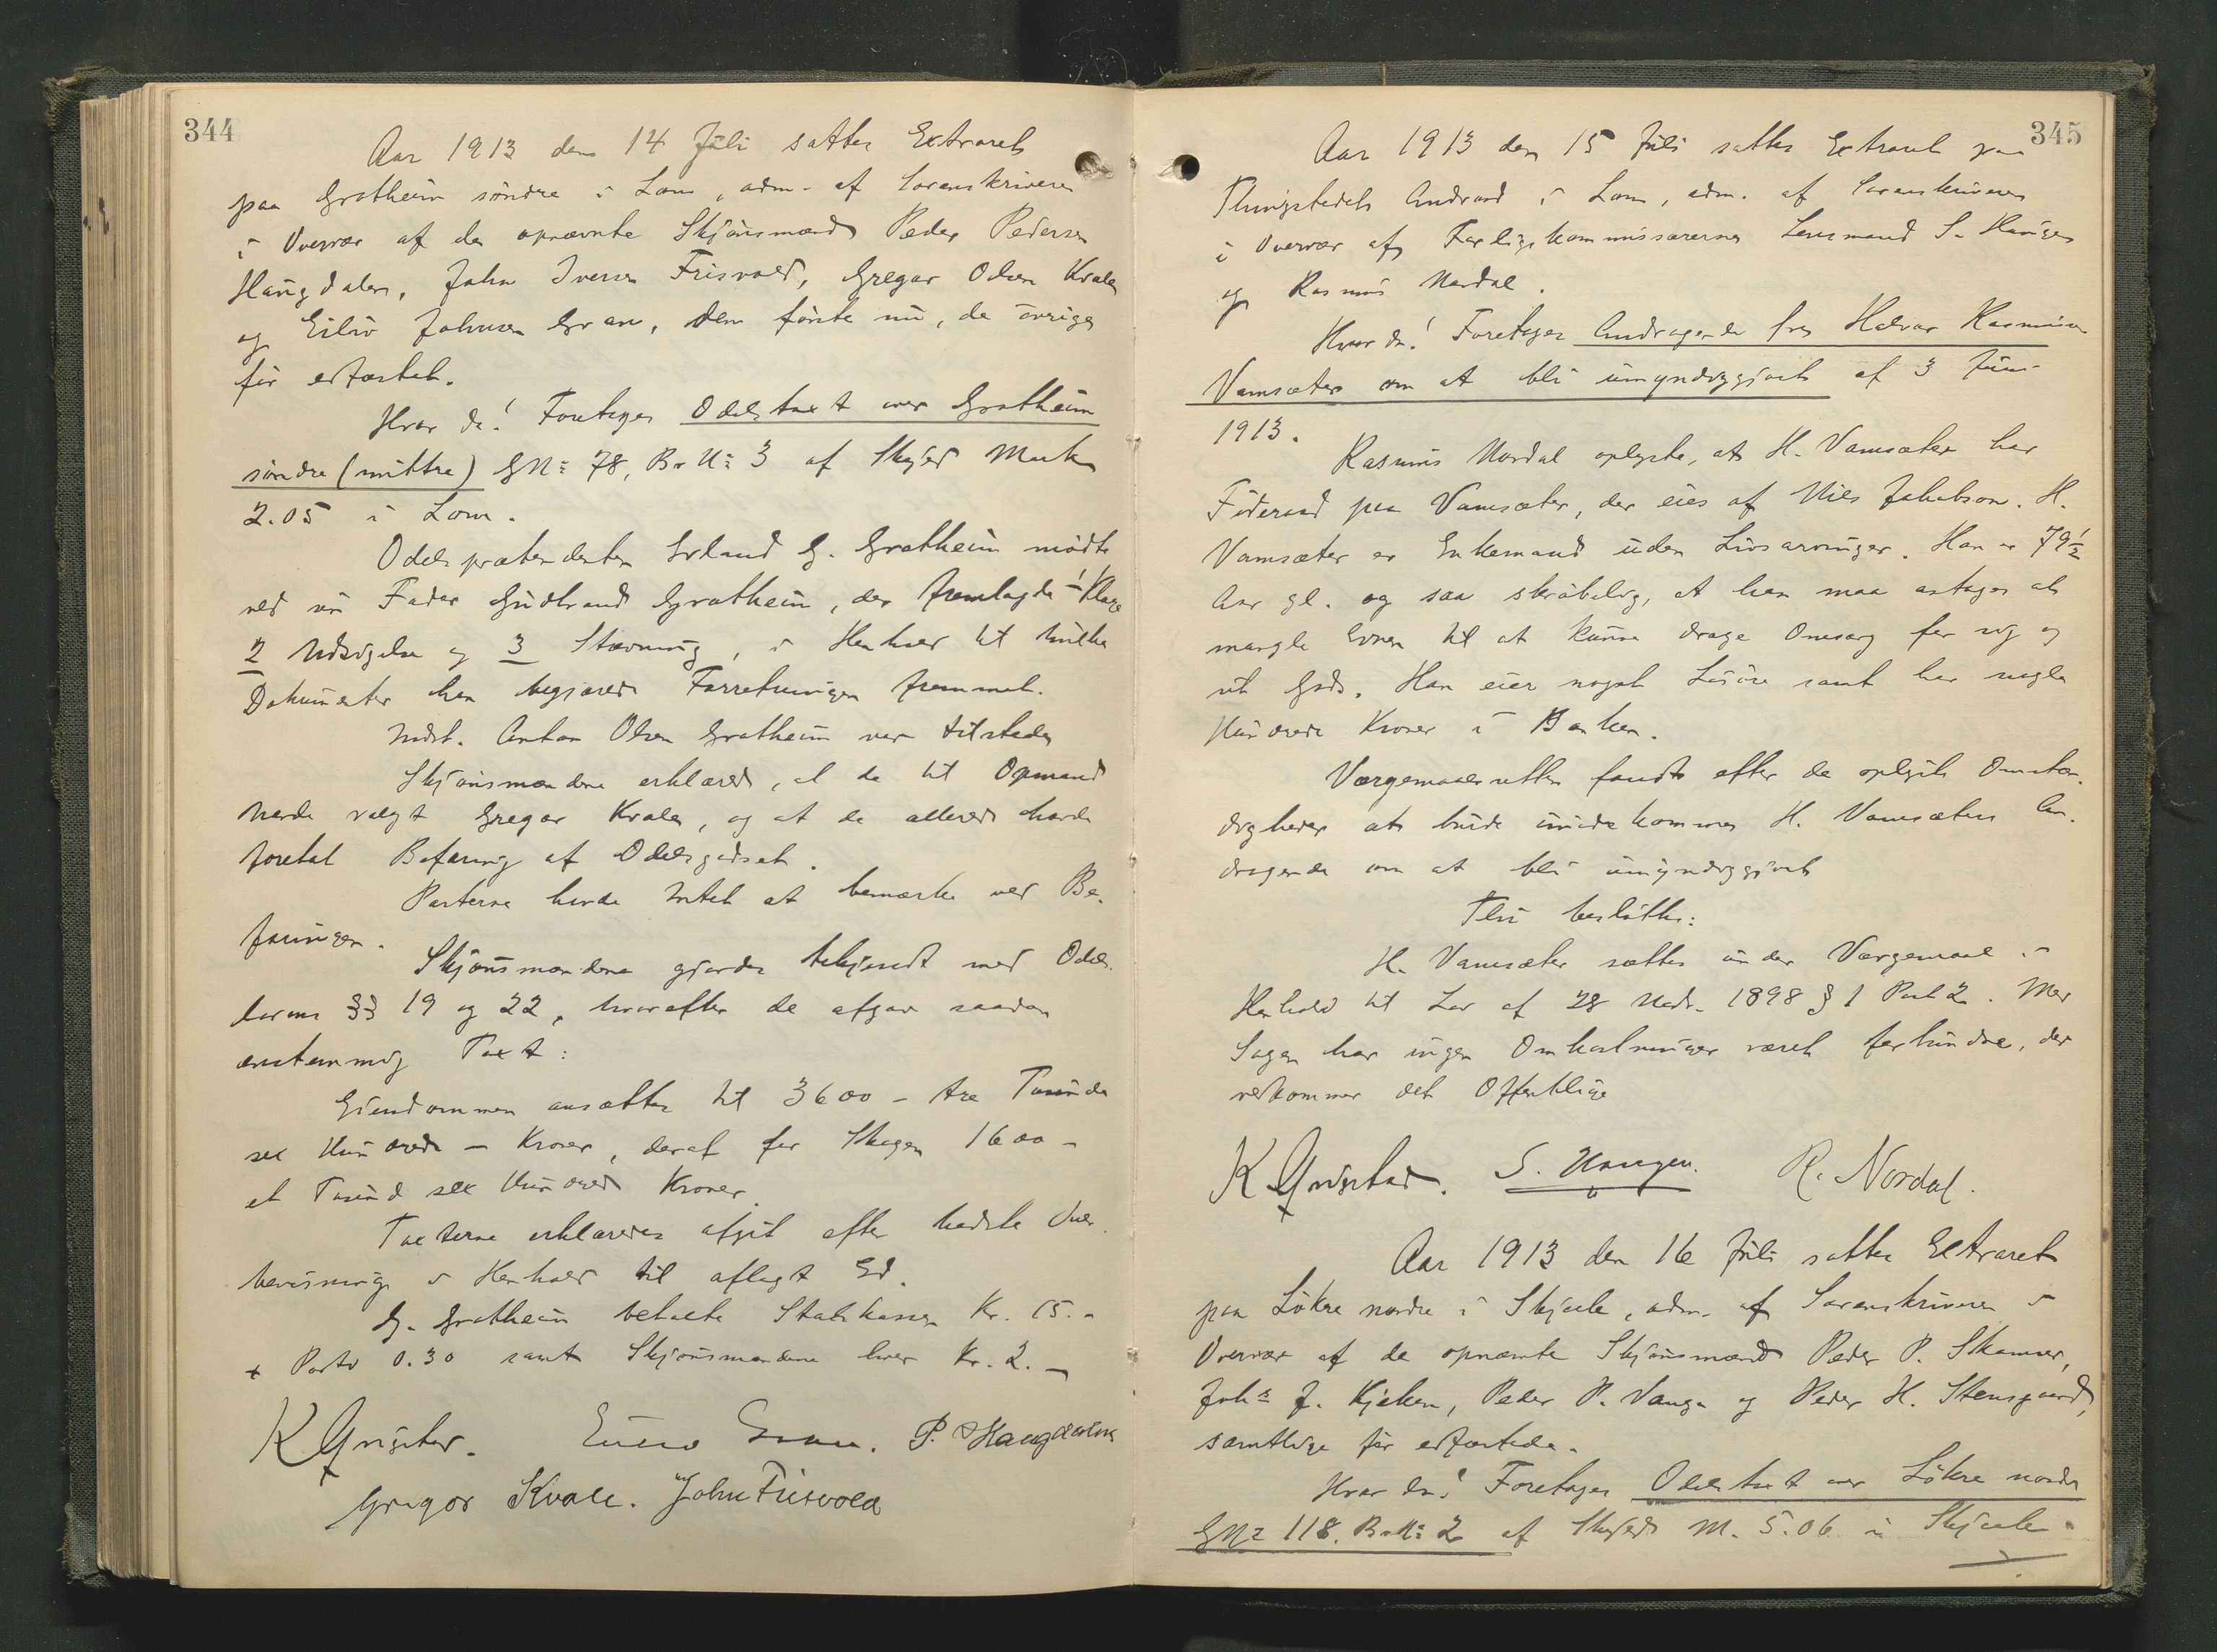 344
Aar 1913 den 14 Juli sattes Extraret
paa Grotheim søndre i Lom, adm. af Sorenskriveren
i Overvær af de opnævnte Skjønsmænd Peder Pedersen
Haugdalen, John Iversen Frisvold, Gregar Olsen Kvale
og Eiliv Johnsen Gran, den første nu, de øvrige
før edfæstet.
Hvor da! Foretages Odelstaxt over Grotheim
søndre (mittre) GNr 78, BrNr 3 af Skyld Mark
2.05 i Lom.
Odelsprætendenten Erland G. Grotheim mødte
ved sin Fader Gudbrand Grotheim, der fremlagde 1 Klage
2 Udsigelse og 3 Stævning, i Henhold til hvilke
Dokumenter han begjærede Forretningen fremmet.
Indst. Anton Olsen Grotheim var tilstede
Skjønsmændene erklærede, at de til Opmand
havde valgt Gregar Kvale, og at de allerede havde
foretat Befaring af Odelsgodset.
Parterne havde Intet at bemærke ved Be-
faringen.
Skjønsmændene gjordes bekjendt med Odels-
lovens §§ 19 og 22, hvorefter de afgav saadan
enstemmig Taxt:
Eiendommen ansættes til 3600 - tre Tusinde
sex Hundrede - Kroner, deraf for Skogen 1600 -
et Tusind sex Hundrede Kroner.
Taxterne erklæredes afgit efter bedste Over-
bevisning i Henhold til aflagt Ed.
G. Grotheim betalte Statskassen Kr. 15.-
+ Porto 0.30 samt Skjønsmændene hver Kr. 2.-
Eiliv Gran. P. Haugdalen
Gregor Kvale. John Frisvold
345
Aar 1913 den 15 Juli sattes Extraret paa
Thingstedet Andvord i Lom, adm. af Sorenskriveren
i Overvær af Forligskommissærerne Lensmand S. Haugen
og Rasmus Nordal.
Hvor da! Foretages Andragende fra Halvor Rasmussen
Vamsæter om at bli umyndiggjort af 3 Juni
1913.
Rasmus Nordal oplyste, at H. Vamsæter har
Føderaad paa Vamsæter, der eies af Nils Jakobson. H.
Vamsæter er Enkemand uden Livsarvinger. Han er 79½
Aar gl. og saa skrøbelig, at han maa antages at
mangle Evnen til at kunne drage Omsorg for sig og
sit Gods. Han eier noget Løsøre samt har nogle
Hundrede Kroner i Banken.
Værgemaalsretten fandt efter de oplyste Omstæn-
digheder at burde imødekomme H. Vamsæters An-
dragende om at bli umyndiggjort
Thi besluttes:
H. Vamsæter sættes under Værgemaal i
Henhold til Lov af 28 Novbr. 1898 § 1 Post 2. Med
Sagen har ingen Omkostninger været forbundne, der
vedkommer det Offentlige
S. Haugen. R. Nordal.
Aar 1913 den 16 Juli sattes Extraret
paa Løkre nordre i Skjaak, adm. af Sorenskriveren i
Overvær af de opnævnte Skjønsmænd Peder P. Skamsar,
Johs J. Kjeken, Peder P. Vange og Peder H. Stensgaard,
samtlige før edfæstede.
Hvor da! Foretages Odelstaxt over Løkre nordre
GNr 118. BrNr 2 af Skyld M. 5.06 i Skjaak.